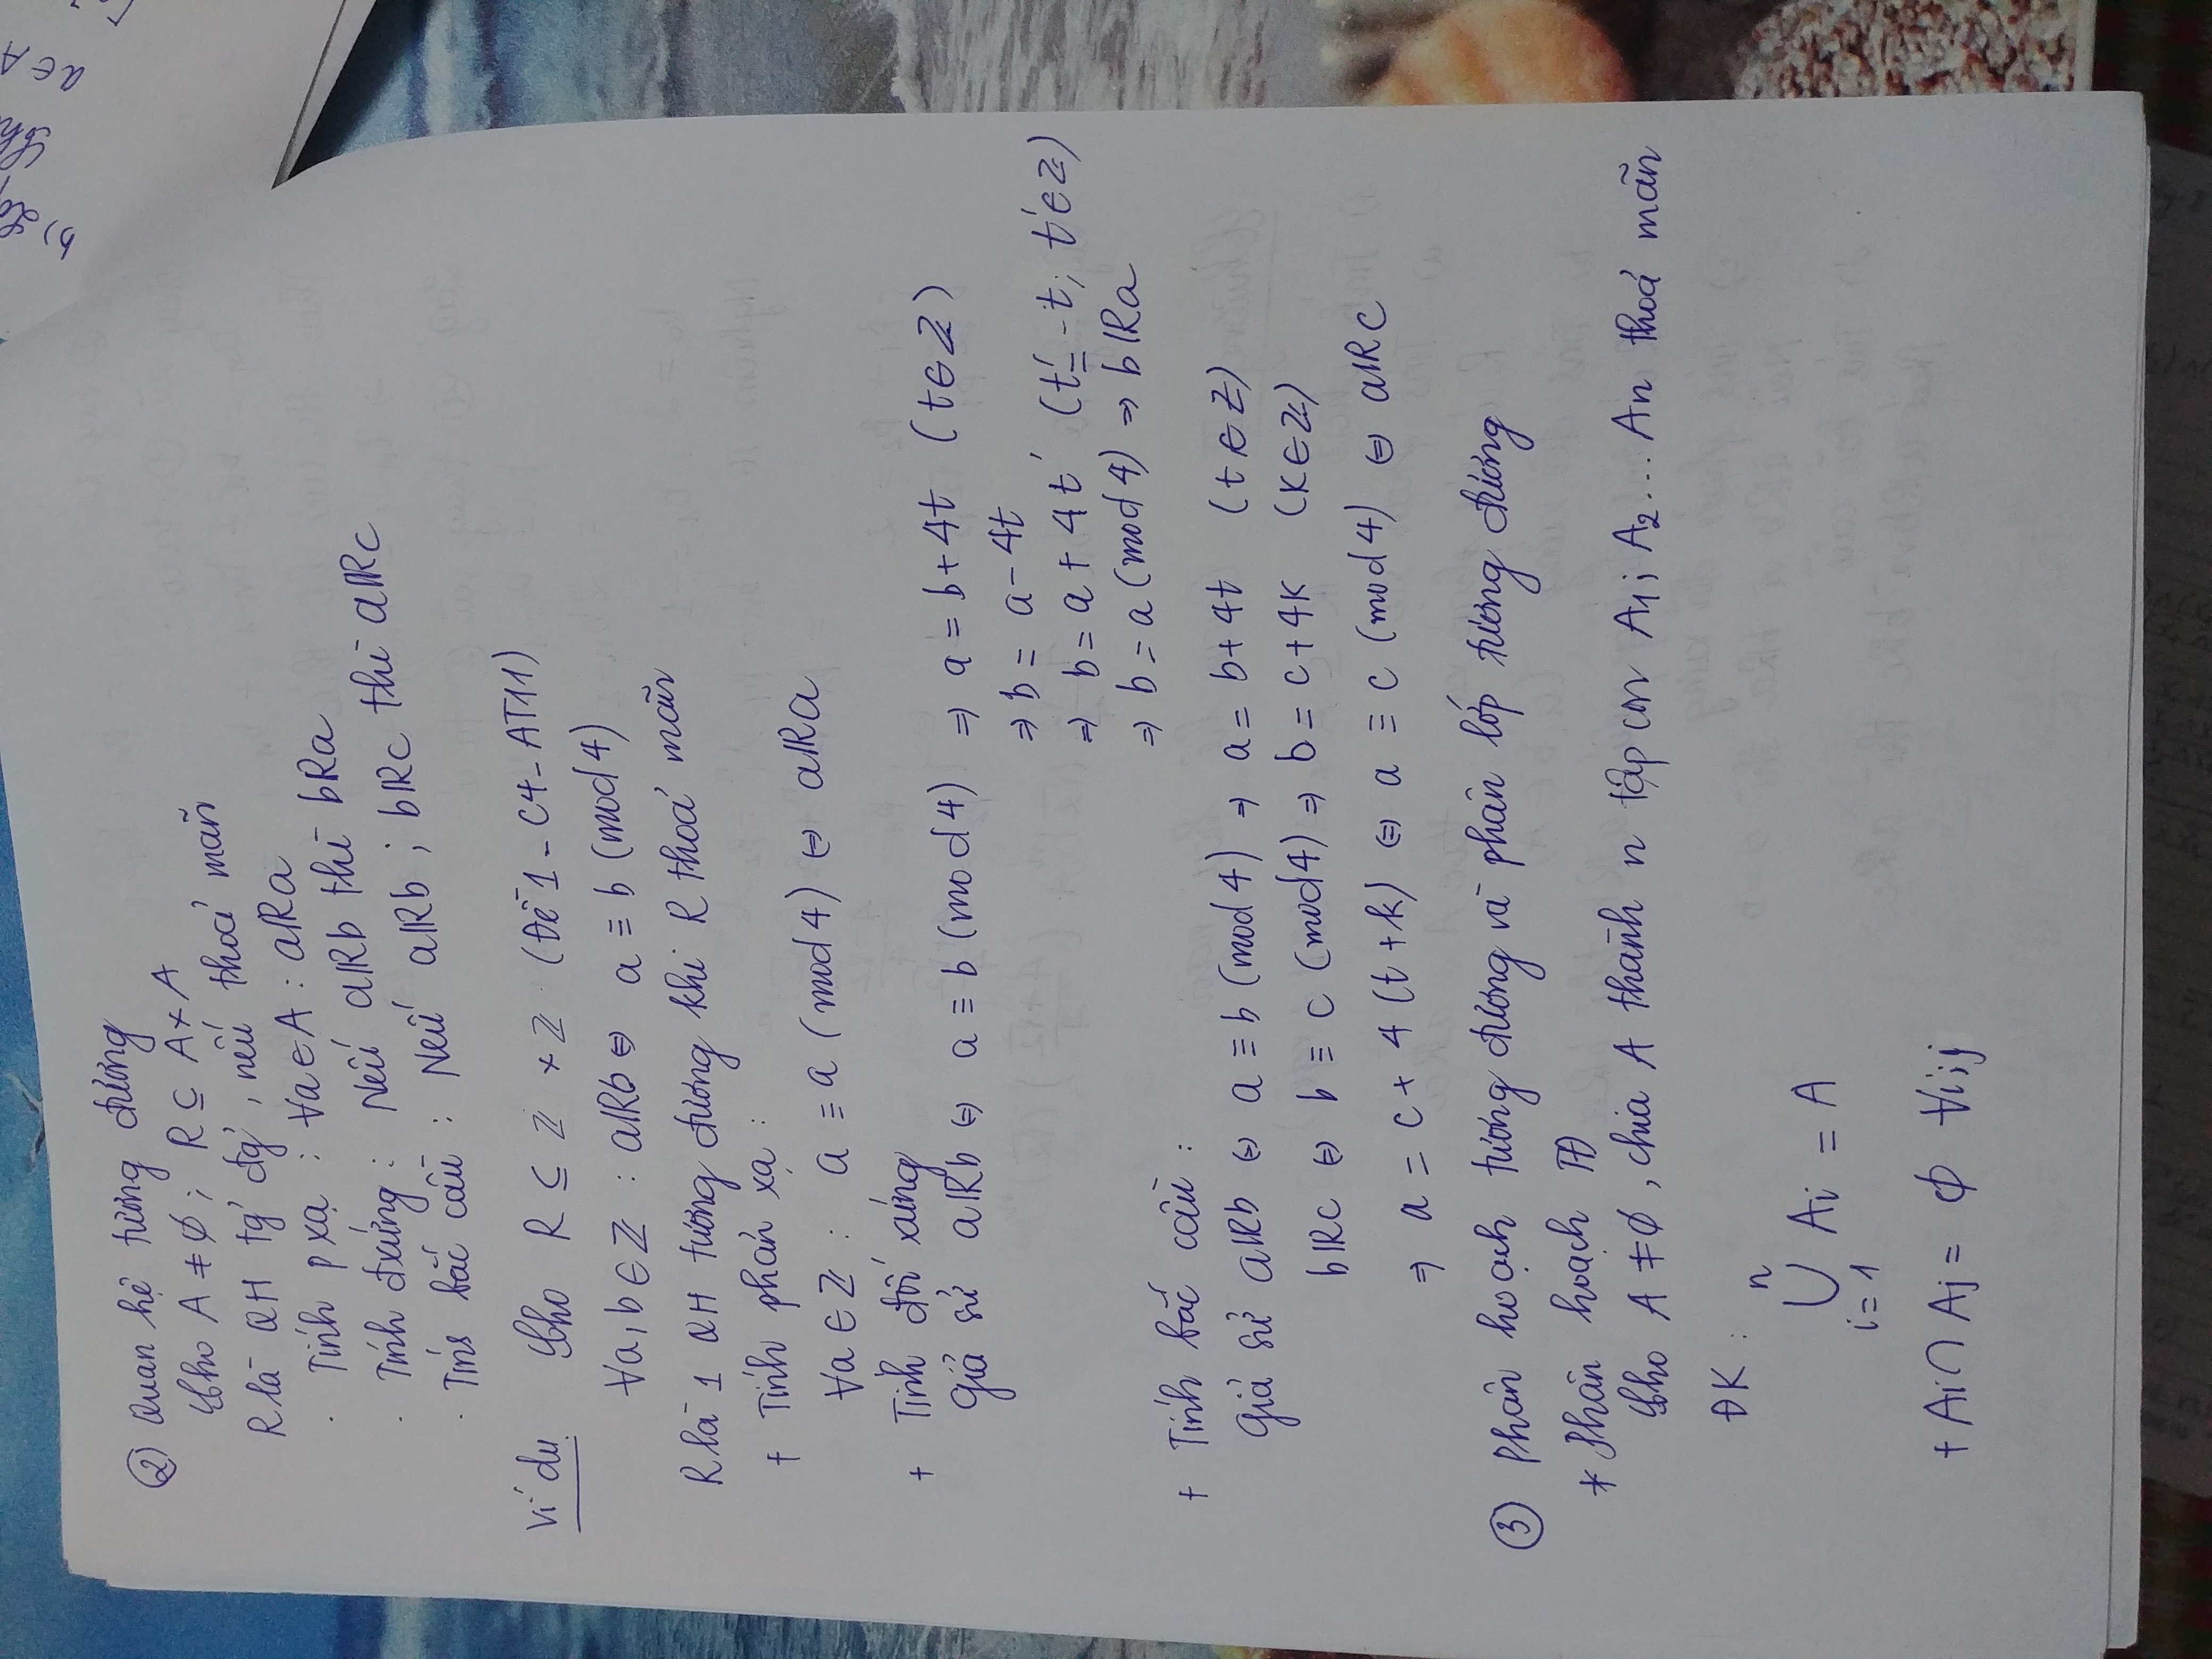 ② Quan hệ tương đương
Cho A ≠ ∅; R ⊆ A×A
R là QH tg đg, nếu thoả mãn
· Tính p xạ : ∀a∈A : aRa
· Tính đxứng : Nếu aRb thì bRa
· Tính bắc cầu : Nếu aRb ; bRc thì aRc
Ví dụ. Cho R ⊆ ℤ × ℤ (Đề 1 - C4 - AT11)
∀a,b∈ℤ : aRb ⇔ a ≡ b (mod 4)
R là 1 QH tương đương khi R thoả mãn
+ Tính phản xạ :
∀a∈ℤ : a ≡ a (mod 4) ⇔ aRa
+ Tính đối xứng
Giả sử aRb ⇔ a ≡ b (mod 4) ⇒ a = b + 4t (t∈ℤ)
⇒ b = a - 4t
⇒ b = a + 4t' (t' = -t; t'∈ℤ)
⇒ b = a (mod 4) ⇒ bRa
+ Tính bắc cầu :
Giả sử aRb ⇔ a ≡ b (mod 4) ⇒ a = b + 4t (t∈ℤ)
bRc ⇔ b ≡ c (mod 4) ⇒ b = c + 4k (k∈ℤ)
⇒ a = c + 4 (t + k) ⇔ a ≡ c (mod 4) ⇔ aRc
③ Phân hoạch tương đương và phân lớp tương đương
* Phân hoạch TĐ
Cho A ≠ ∅, chia A thành n tập con A₁; A₂... An thoả mãn
ĐK :
n
⋃ Ai = A
i = 1
+ Ai ∩ Aj = ∅ ∀i;j
b)
a∈A